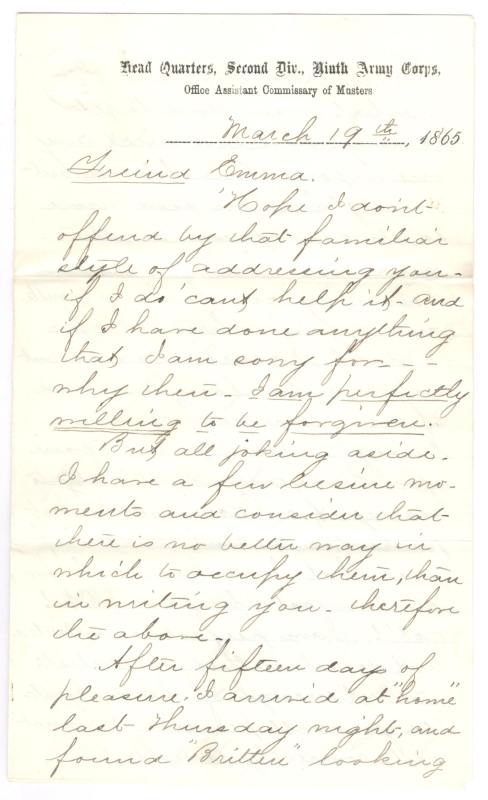 Head Quarters, Second Div., Ninth Army Corps,
Office Assistant Commissary of Musters
March 19th, 1865
Freind Emma.
'Hope I dont
offend by that familiar
style of addressing you-
if I do 'cant help it- and
if I have done anything
that I am sorry for - - -
why then- I am perfectly
willing to be forgiven.
But all joking aside.
I have a few liesure mo-
ments and consider that
there is no better way in
which to occupy them, than
in writing you- therefore
the above-
After fifteen days of
pleasure I arrived at "home"
last Thursday night, and
found "Britten" looking